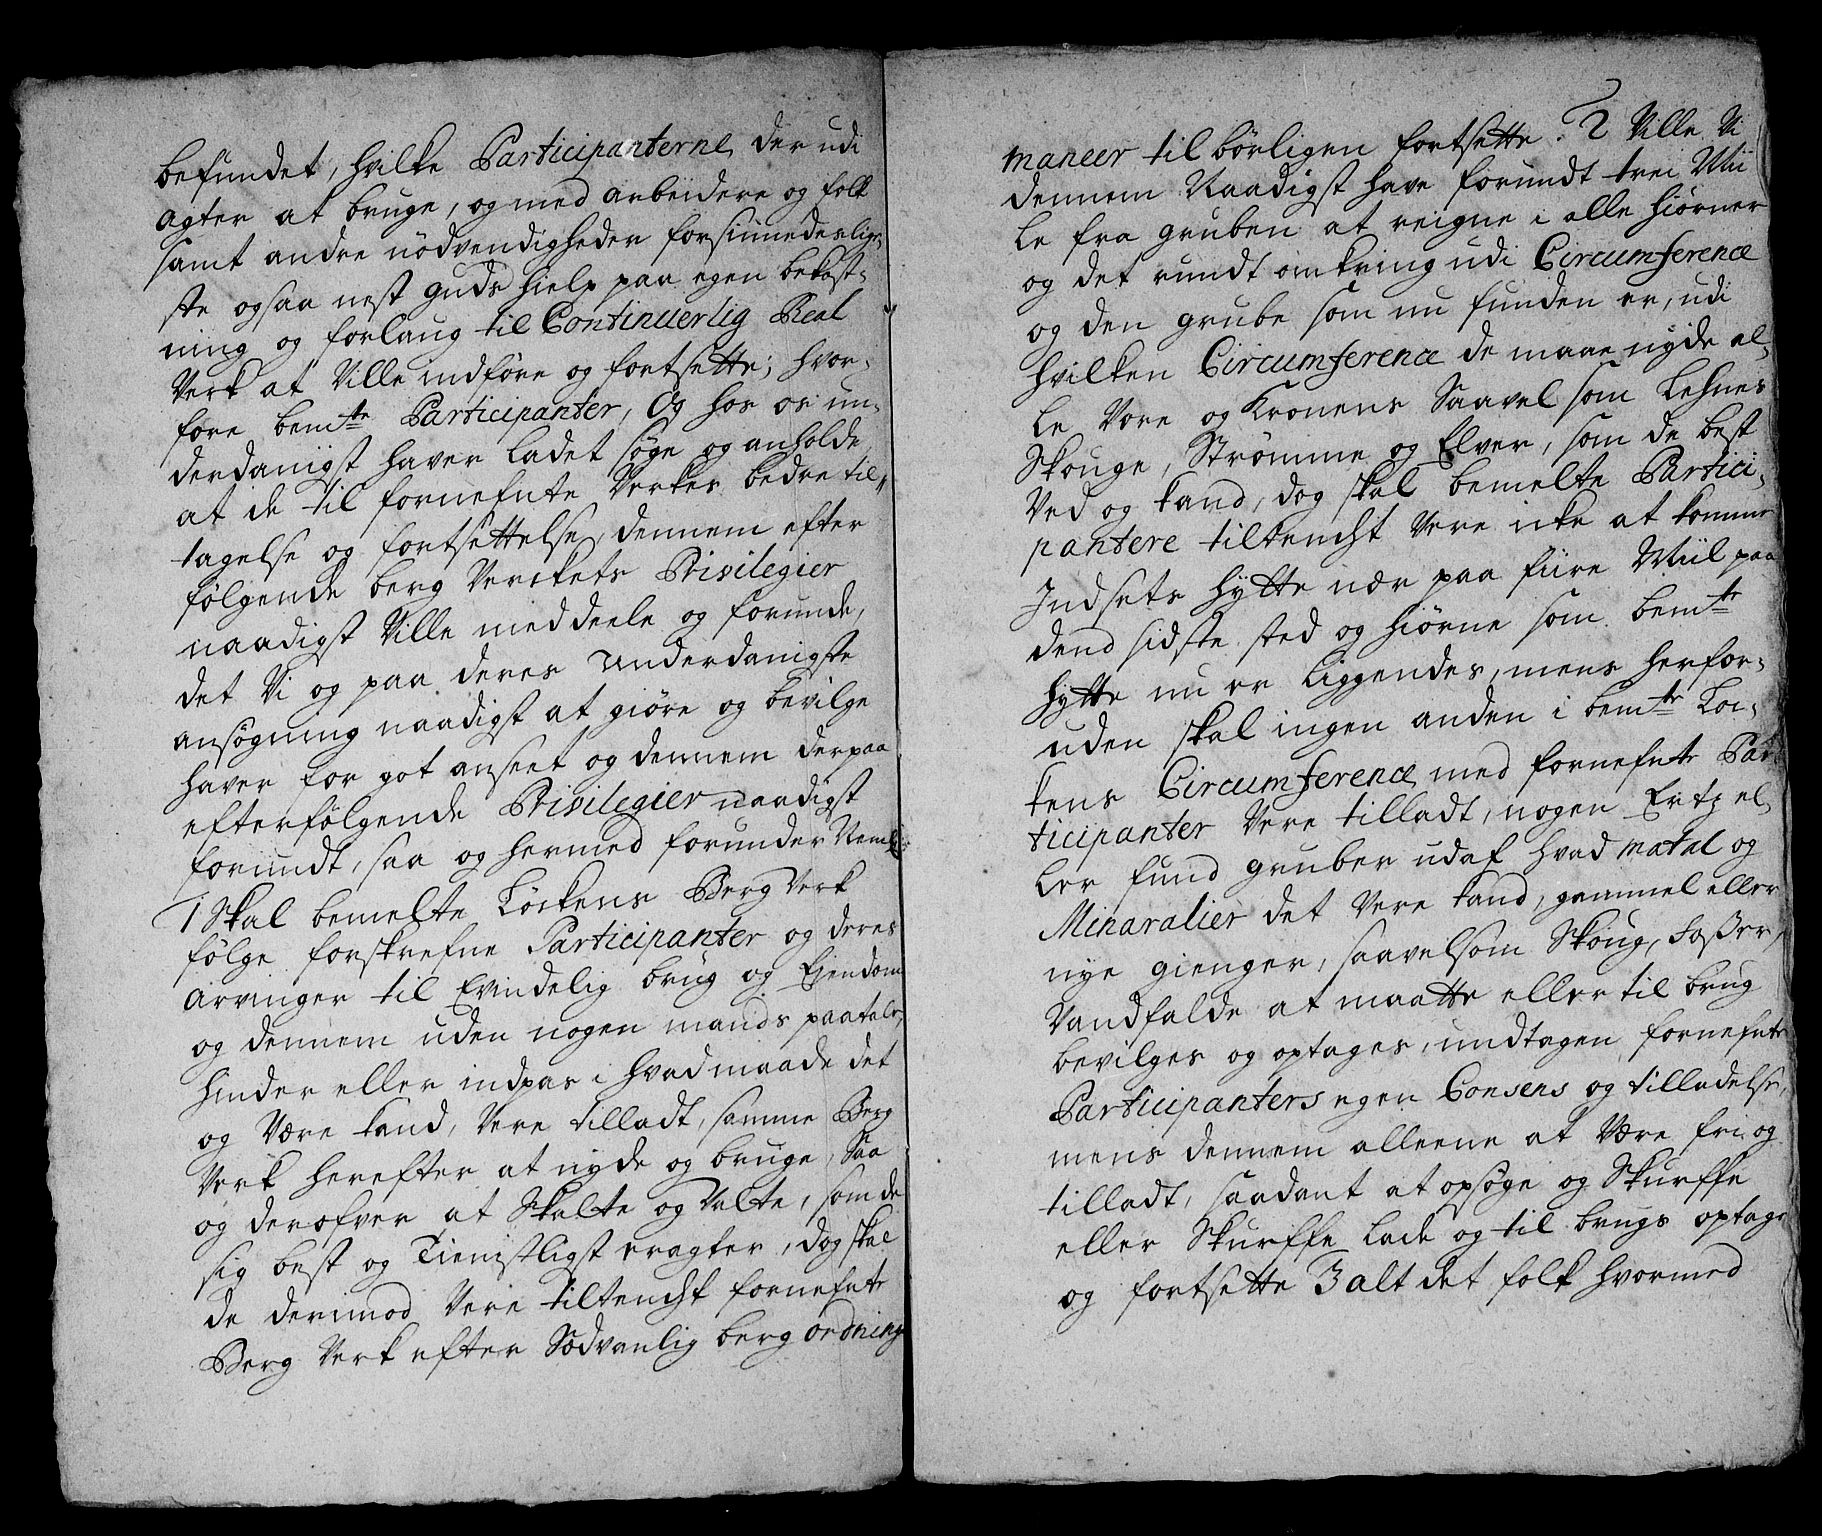 befundet, hvilke Participanterne der udi
agter at bruge, og med arbeidere og folk
samt andre nödvendigheder forsinnederlig-
ste ogsaa nest guds hielp paa egen bekost-
ning og forlaug til Continuerlig Real
Verk at Ville indføre og fortsette; hvor-
fore bemte Participanter, Og hos os un-
derdanigst haver ladet søge og anholde
at de til fornefnte Verkes bedre til-
tagelse og fortsettelse, dennem efter
følgende berg Verckets Privilegier
naadigst Ville meddeele og forunde,
det Vi og paa deres Underdanigste
ansøgning naadigst at giøre og bevilge
haver for got anseet og dennem derpaa
efterfølgende Privilegier naadigst
forundt, saa og hermed forunder Neml:
1 Skal bemelte Löckens Berg Verk
følge forskrefne Participanter og deres
Arvinger til Evindelig brug og Ejendom
og dennem uden nogen mands paatale,
hinder eller indpas i hvad maade det
og Være kand, Vere tilladt, samme Berg
Verk herefter at nyde og bruge, Saa
og derofver at Skalte og Valte, som de
sig best og Tienstligst eragter, dog skal
de derimod Vere tiltencht fornefnte
Berg Verk efter Sødvanlig berg ordning
maneer tilbørligen fortsette. 2 Ville Vi
dennem Naadigst have forundt trei Mii
le fra gruben at reigne i alle hiörner
og det rundt omkring udi Circumference
og den grube som nu funden er, udi
hvilken Circumference de maae nyde al-
le Vore og Kronens Saavel som Lehnes
Skouge, Strömme og Elver, som de best
Ved og kand, dog skal bemelte Partici-
pantere tiltencht Vere icke at komme
Indsets Hytte nær paa fiire Miil paa
dend sidste sted og hiörne som bemte
Hytte nu er liggendes, mens herfor-
uden skal ingen anden i bemte Löc-
kens Circumference med fornefnte Par
ticipanter Vere tilladt, nogen Ertz el-
ler fund gruber udaf hvad matal og
Minaralier det Vere kand, gammel eller
nye gienger, saavelsom Skoug, Foszer,
Vandfalde at maatte eller til brug
bevilges og optages, undtagen fornefnte
Participanters egen Consens og tilladelse,
mens dennem alleene at Være fri og
tilladt, saadant at opsøge og Skurffe
eller Skurffe lade og til brugs optage
og fortsette 3 alt det folk hvormed